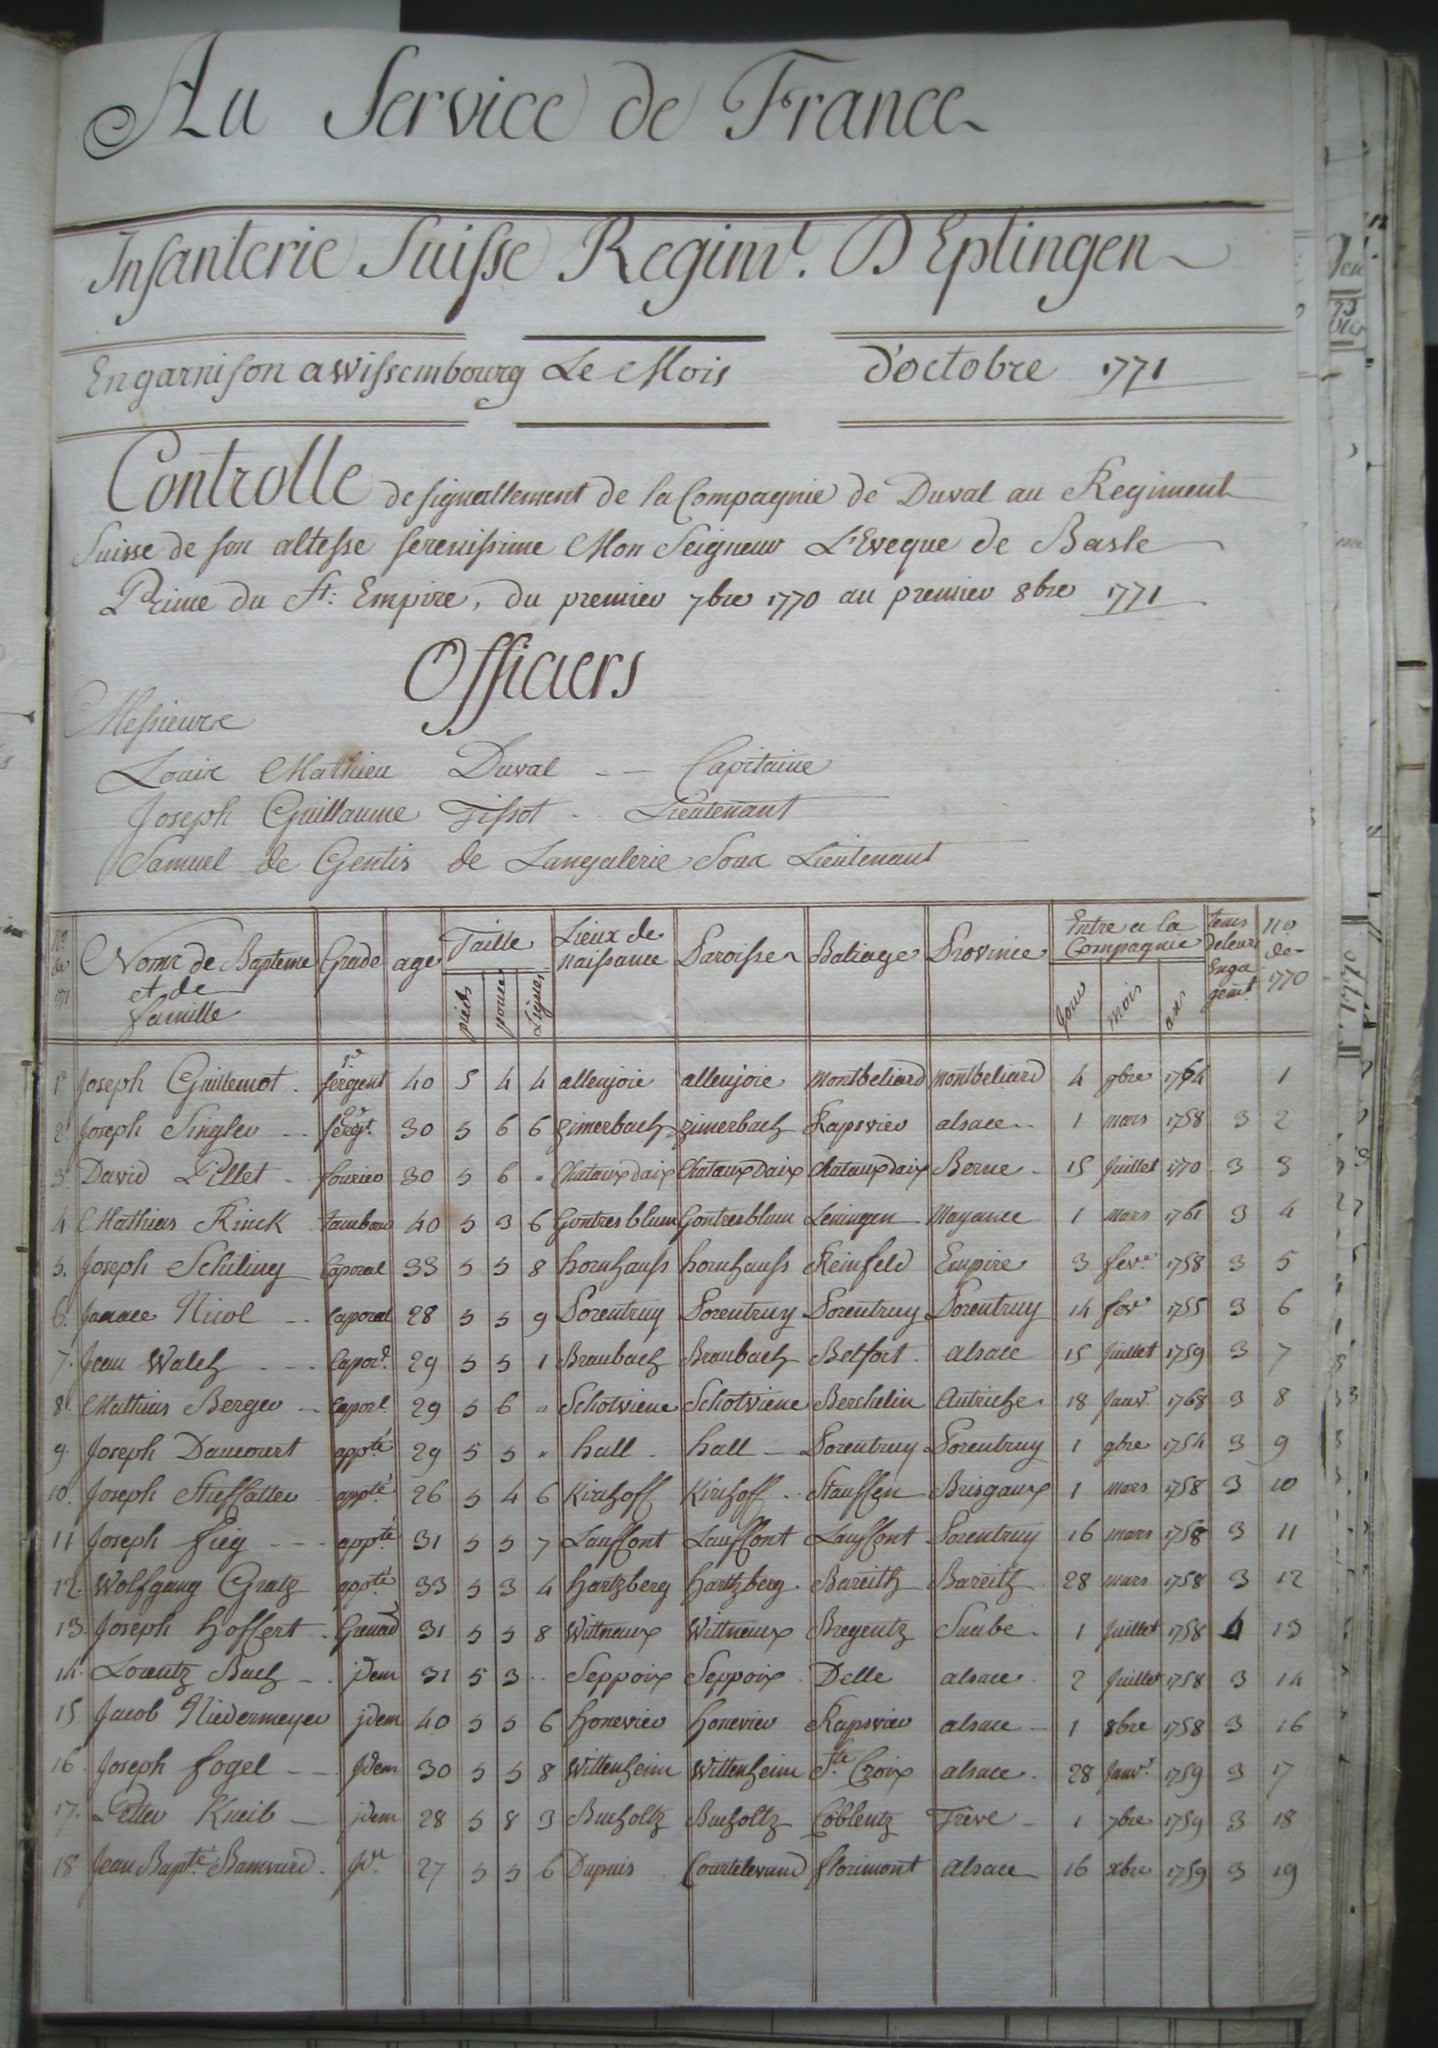 Au Service de France
Infanterie Suisse Regimt. D'Eptingen
En garnison a Wissembourg Le Mois d'octobre 1771
Controlle de signallement de la Compagnie de Duval au Regiment
Suisse de son altesse serenissime Mon Seigneur L'Eveque de Basle
Prince du St: Empire, du premier 7bre 1770 au premier 8bre 1771
Officiers
Messieurs
Louis Mathieu Duval -- Capitaine
Joseph Guillaume Tissot . Lieutenant
Samuel de Gentis de Langalerie Sous Lieutenant
no de 1771 Noms de Bapteme et de famille Grade age Taille pieds pouces Lignes Lieux de naissance Paroisse Baliage Province Entre a la Compagnie jour mois ans tems de leurs Engagemt. no de 1770
1 Joseph Guillemot . 1r sergent 40 5 4 4 allenjoie allenjoie Montbeliard Montbeliard 4 9bre 1764 1
2 Joseph Singler -- sergt. 30 5 6 6 Zimerbach Zimerbach Kapsvier alsace 1 mars 1758 3 2
3 David Pillet . fourier 30 5 6 " Chataux Daix Chataux Daix Chataux daix Berne 15 Juillet 1770 3 3
4 Mathias Rinck tambour 40 5 3 6 Gontresblum Gontresblum Leningen Mayance 1 mars 1761 3 4
5. Joseph Schiling Caporal 33 5 5 8 hornhauss hornhauss Reinfeld Empire 3 fevr. 1758 3 5
6. Nicol -- Caporal 28 5 5 9 Porentruy Porentruy Porentruy Porentruy 14 fevr 1755 3 6
7. Jean Walch --- Caporl. 29 5 5 1 Braubach Braubach Belfort alsace 15 Juillet 1759 3 7
8. Mathias Berger -- Caporl. 29 5 6 " Schotviene Schotviene Berchelin Autriche 18 Janvr. 1768 3 8
9. Joseph Daucourt appté 29 5 5 " hall hall Porentruy Porentruy 1 9bre 1754 3 9
10. Joseph appté 26 5 4 6 Kirchoff Kirchoff Stauffen Brisgaux 1 mars 1758 3 10
11 Joseph fieg --- appté 31 5 5 7 Lauffont Lauffont Lauffont Porentruy 16 mars 1758 3 11
12. Wolfgang Gratz appté 33 5 3 4 hartzberg hartzberg Bareith Bareith 28 mars 1758 3 12
13. Joseph hoffert . Grenad 31 5 5 8 Wittnaux Wittnaux Bregentz Suabe 1 Juillet 1758 13
14. Lorentz Bach -- jdem 31 5 3 .. Seppoix Seppoix Delle alsace 2 Juillet 1758 3 14
15 Jacob Niedermeyer jdem 40 5 5 6 honevier honevier Kapsvier alsace 1 8bre 1758 3 16
16. Joseph fogel -- jdem 30 5 5 8 Wittenheim Wittenheim Ste. Croix alsace 28 Janvr. 1759 3 17
17. Petter Kneib -- jdem 28 5 8 3 Bucholtz Bucholtz Coblentz Treve 1 7bre 1759 3 18
18 Jean Bapte. Banvard . jd. 27 5 5 6 Dupuis Courtelevand florimont alsace 16 xbre 1759 3 19